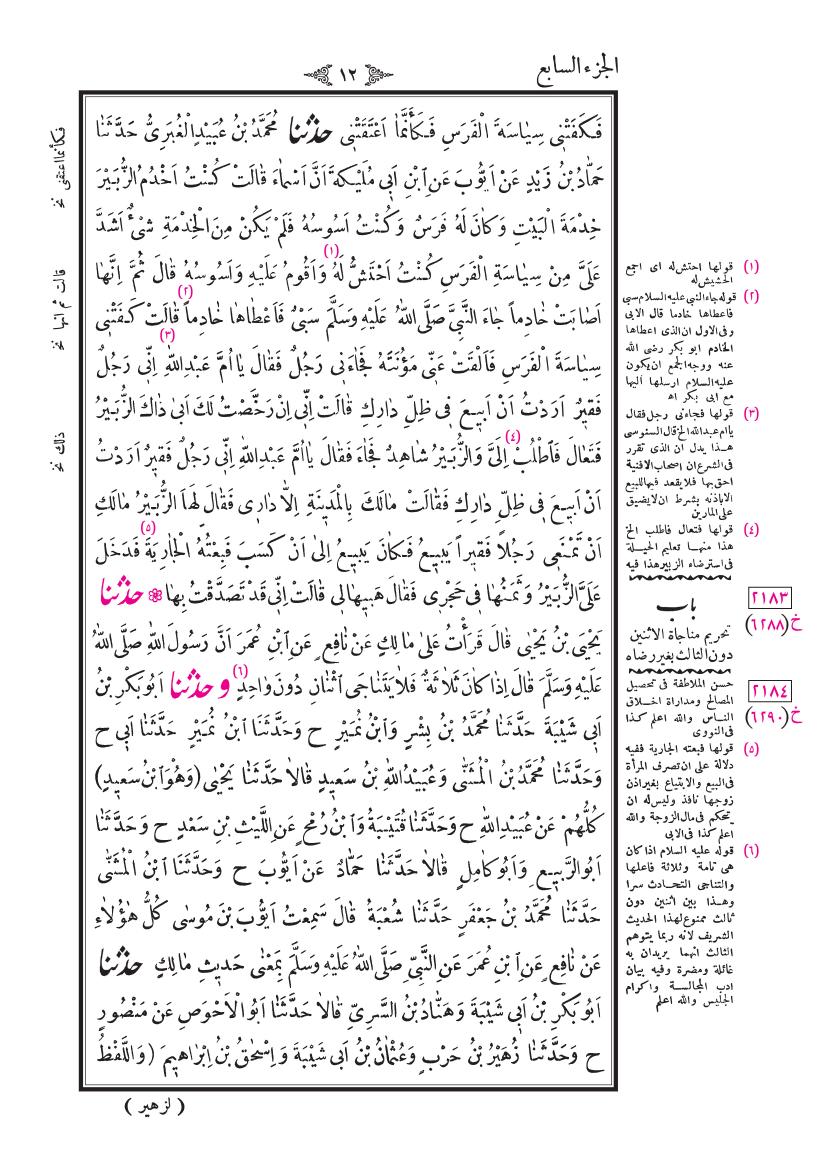 الجزء السابع
١٢
فَكَفَتْنِى سِيَاسَةَ الْفَرَسِ فَكَأَنَّمَا اَعْتَقَتْنِى حَدَّثَنَا مُحَمَّدُ بْنُ عُبَيْدٍ الْغُبَرِىُّ حَدَّثَنَا
حَمَّادُ بْنُ زَيْدٍ عَنْ اَيُّوبَ عَنِ ابْنِ اَبِى مُلَيْكَةَ اَنَّ اَسْمَاءَ قَالَتْ كُنْتُ اَخْدُمُ الزُّبَيْرَ
خِدْمَةَ الْبَيْتِ وَكَانَ لَهُ فَرَسٌ وَكُنْتُ اَسُوسُهُ فَلَمْ يَكُنْ مِنَ الْخِدْمَةِ شَىْءٌ اَشَدَّ
عَلَىَّ مِنْ سِيَاسَةِ الْفَرَسِ كُنْتُ اَحْتَشُّ لَهُ (١) وَاَقُومُ عَلَيْهِ وَاَسُوسُهُ قَالَ ثُمَّ اِنَّهَا
اَصَابَتْ خَادِماً جَاءَ النَّبِىَّ صَلَّى اللّٰهُ عَلَيْهِ وَسَلَّمَ سَبْىٌ فَاَعْطَاهَا خَادِماً (٢) قَالَتْ كَفَتْنِى
سِيَاسَةَ الْفَرَسِ فَاَلْقَتْ عَنِّى مَؤُنَتَهُ فَجَاءَنِى (٣) رَجُلٌ فَقَالَ يَا اُمَّ عَبْدِاللّٰهِ اِنِّى رَجُلٌ
فَقِيرٌ اَرَدْتُ اَنْ اَبِيعَ فِى ظِلِّ دَارِكِ قَالَتْ اِنِّى اِنْ رَخَّصْتُ لَكَ اَبَى ذَاكَ الزُّبَيْرُ
فَتَعَالَ فَاطْلُبْ (٤) اِلَىَّ وَالزُّبَيْرُ شَاهِدٌ فَجَاءَ فَقَالَ يَا اُمَّ عَبْدِاللّٰهِ اِنِّى رَجُلٌ فَقِيرٌ اَرَدْتُ
اَنْ اَبِيعَ فِى ظِلِّ دَارِكِ فَقَالَتْ مَالَكَ بِالْمَدِينَةِ اِلَّا دَارِى فَقَالَ لَهَا الزُّبَيْرُ مَالَكِ
اَنْ تَمْنَعِى رَجُلاً فَقِيراً يَبِيعُ فَكَانَ يَبِيعُ اِلَى اَنْ كَسَبَ فَبِعْتُهُ الْجَارِيَةَ (٥) فَدَخَلَ
عَلَىَّ الزُّبَيْرُ وَثَمَنُهَا فِى حَجْرِى فَقَالَ هَبِيهَا لِى قَالَتْ اِنِّى قَدْ تَصَدَّقْتُ بِهَا ❁ حَدَّثَنَا
يَحْيَى بْنُ يَحْيَى قَالَ قَرَأْتُ عَلَى مَالِكٍ عَنْ نَافِعٍ عَنِ ابْنِ عُمَرَ اَنَّ رَسُولَ اللّٰهِ صَلَّى اللّٰهُ
عَلَيْهِ وَسَلَّمَ قَالَ اِذَا كَانَ ثَلاَثَةٌ فَلاَ يَتَنَاجَى اثْنَانِ دُونَ وَاحِدٍ (٦) وَ حَدَّثَنَا اَبُو بَكْرِ بْنُ
اَبِى شَيْبَةَ حَدَّثَنَا مُحَمَّدُ بْنُ بِشْرٍ وَابْنُ نُمَيْرٍ ح وَحَدَّثَنَا ابْنُ نُمَيْرٍ حَدَّثَنَا اَبِى ح
وَحَدَّثَنَا مُحَمَّدُ بْنُ الْمُثَنَّى وَعُبَيْدُاللّٰهِ بْنُ سَعِيدٍ قَالاَ حَدَّثَنَا يَحْيَى (وَهُوَ ابْنُ سَعِيدٍ)
كُلُّهُمْ عَنْ عُبَيْدِاللّٰهِ ح وَحَدَّثَنَا قُتَيْبَةُ وَابْنُ رُمْحٍ عَنِ اللَّيْثِ بْنِ سَعْدٍ ح وَحَدَّثَنَا
اَبُو الرَّبِيعِ وَاَبُو كَامِلٍ قَالاَ حَدَّثَنَا حَمَّادٌ عَنْ اَيُّوبَ ح وَحَدَّثَنَا ابْنُ الْمُثَنَّى
حَدَّثَنَا مُحَمَّدُ بْنُ جَعْفَرٍ حَدَّثَنَا شُعْبَةُ قَالَ سَمِعْتُ اَيُّوبَ بْنَ مُوسَى كُلُّ هٰؤُلاَءِ
عَنْ نَافِعٍ عَنِ ابْنِ عُمَرَ عَنِ النَّبِىِّ صَلَّى اللّٰهُ عَلَيْهِ وَسَلَّمَ بِمَعْنَى حَدِيثِ مَالِكٍ حَدَّثَنَا
اَبُو بَكْرِ بْنُ اَبِى شَيْبَةَ وَهَنَّادُ بْنُ السَّرِىِّ قَالاَ حَدَّثَنَا اَبُو الْاَحْوَصِ عَنْ مَنْصُورٍ
ح وَحَدَّثَنَا زُهَيْرُ بْنُ حَرْبٍ وَعُثْمَانُ بْنُ اَبِى شَيْبَةَ وَاِسْحٰقُ بْنُ اِبْرَاهِيمَ (وَاللَّفْظُ
( لزهير )
(١) قولها احتش له اى اجمع
الحشيش له
(٢) قوله جاء النبى عليه السلام سبى
فاعطاها خادما قال الابى
وفى الاول ان الذى اعطاها
الخادم ابو بكر رضى الله
عنه ووجه الجمع ان يكون
عليه السلام ارسلها اليها
مع ابى بكر اه
(٣) قولها فجاءنى رجل فقال
يا ام عبدالله الخ قال السنوسى
هذا يدل ان الذى تقرر
فى الشرع ان اصحاب الافنية
احق بها فلا يقعد فيها للبيع
الا باذنه بشرط ان لا يضيق
على المارين
(٤) قولها فتعال فاطلب الخ
هذا منها تعليم الحيلة
فى استرضاء الزبير هذا فيه
باب
تحريم مناجاة الاثنين
دون الثالث بغير رضاه
حسن الملاطفة فى تحصيل
المصالح ومداراة اخلاق
الناس والله اعلم كذا
فى النووى
(٥) قولها فبعته الجارية ففيه
دلالة على ان تصرف المرأة
فى البيع والابتياع بغير اذن
زوجها نافذ وليس له ان
يتحكم فى مال الزوجة والله
اعلم كذا فى الابى
(٦) قوله عليه السلام اذا كان
هى تامة وثلاثة فاعلها
والتناجى التحادث سرا
وهذا بين اثنين دون
ثالث ممنوع لهذا الحديث
الشريف لانه ربما يتوهم
الثالث انهما يريدان به
غائلة ومضرة وفيه بيان
ادب المجالسة واكرام
الجليس والله اعلم
٢١٨٣
خ (٦٢٨٨)
٢١٨٤
خ (٦٢٩٠)
فكأنما اعتقنى نخ
قالت ثم انها نخ
ذلك نخ